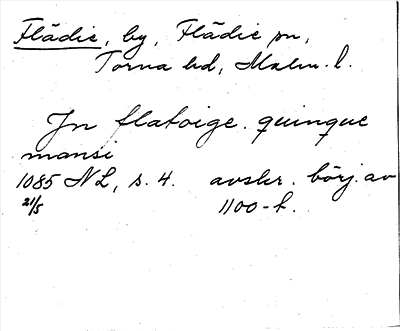 Flädie, by, Flädie sn,
Torna hd, Malm. l.
Jn flatoige. quinque
mansi
1085 NL, s. 4. avskr. börj. av
21/5 1100-t.